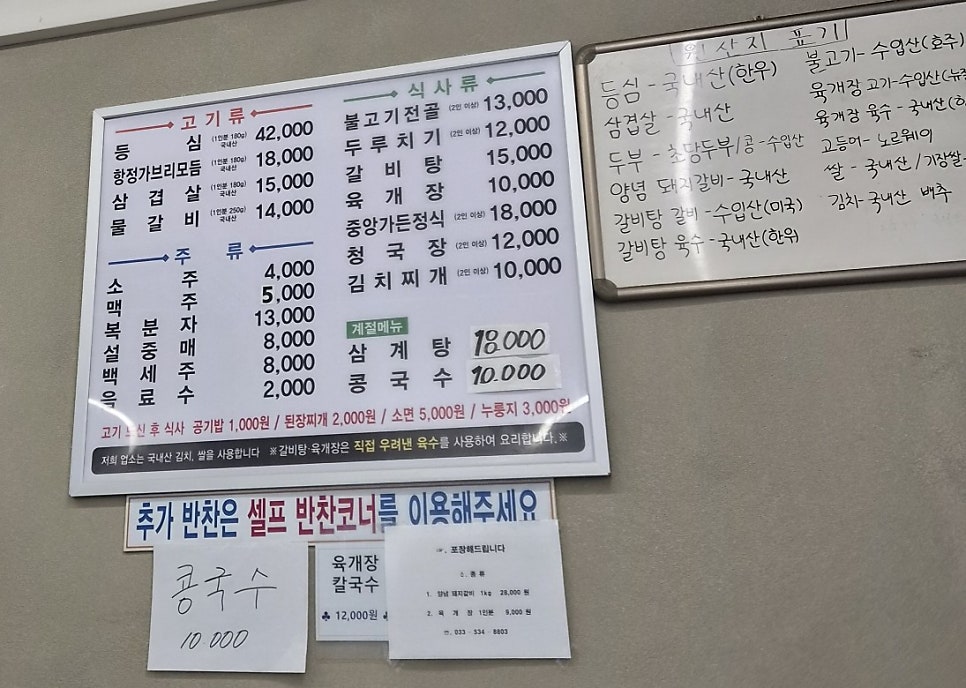 고기류
등심 (1인분 180g) 국내산 42,000
항정가브리모듬 (1인분 180g) 국내산 18,000
삼겹살 (1인분 180g) 국내산 15,000
물갈비 (1인분 250g) 국내산 14,000
주류
소주 4,000
맥주 5,000
복분자 13,000
설중매 8,000
백세주 8,000
음료수 2,000
식사류
불고기전골 (2인 이상) 13,000
두루치기 (2인 이상) 12,000
갈비탕 15,000
육개장 10,000
중앙가든정식 (2인 이상) 18,000
청국장 (2인 이상) 12,000
김치찌개 (2인 이상) 10,000
계절메뉴
삼계탕 18,000
콩국수 10.000
고기 드신 후 식사 공기밥 1,000원 / 된장찌개 2,000원 / 소면 5,000원 / 누룽지 3,000원
저희 업소는 국내산 김치, 쌀을 사용합니다 ※갈비탕·육개장은 직접 우려낸 육수를 사용하여 요리합니다.※
추가 반찬은 셀프 반찬코너를 이용해주세요
콩국수
10.000
육개장
칼국수
♣ 12,000원 ♣
포장해드립니다
종류
1. 양념 돼지갈비 1kg 28,000 원
2. 육 개 장 1인분 9,000 원
☏. 033 - 534 - 8803
원산지 표기
등심 - 국내산(한우)
삼겹살 - 국내산
두부 - 초당두부/콩 - 수입산
양념 돼지갈비 - 국내산
갈비탕 갈비 - 수입산(미국)
갈비탕 육수 - 국내산(한위)
불고기 - 수입산(호주)
육개장 고기-수입산(뉴
육개장 육수 - 국내산(
고등어 - 노르웨이
쌀 - 국내산/기장쌀-
김치-국내산 배추